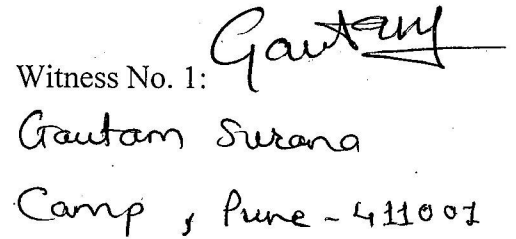 Witness No. 1: Gautam
Gautam Surana
Camp, Pune - 411001